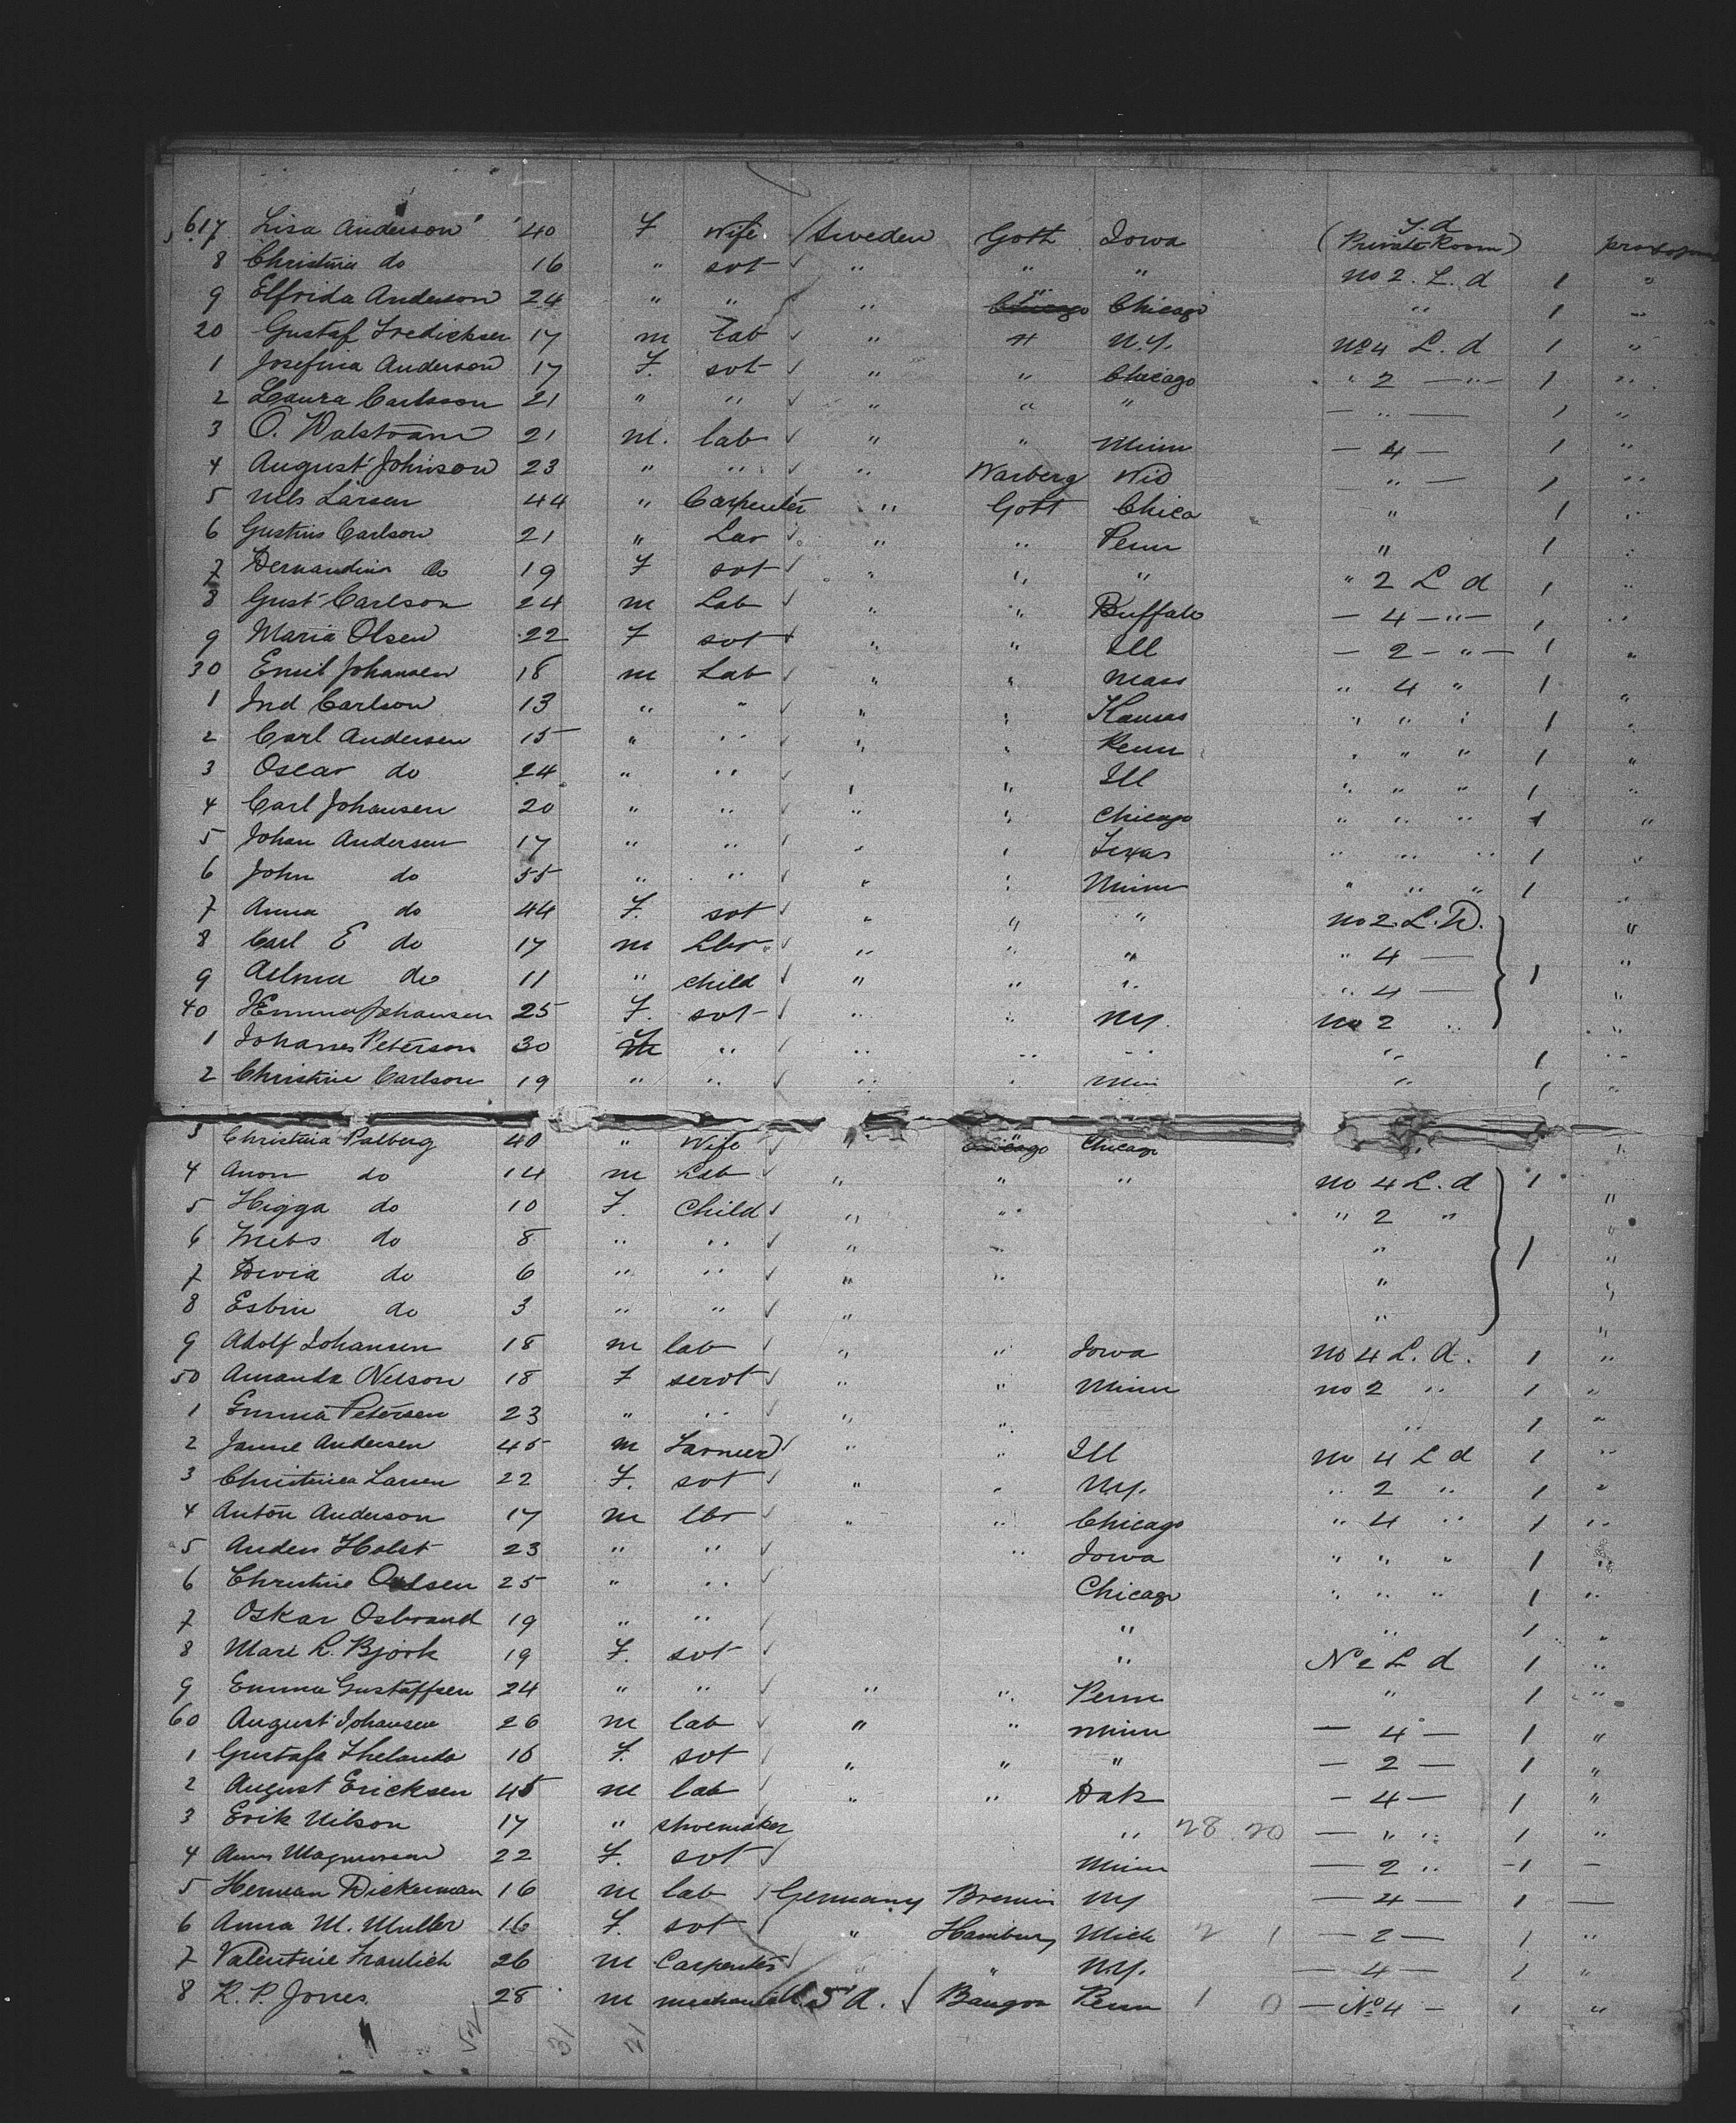 617 Lisa Anderson 40 F Wife Sweden Goth Iowa (Private Room)
8 Christina do 16 " svt " " " No 2. L. d 1 "
9 Elfrida Anderson 24 " " " " Chicago " 1 "
20 Gustaf Fredicksen 17 m Lab " " N.Y. No 4 L. d 1 "
1 Josefina Anderson 17 F. svt " " Chicago " 2 — " — 1 "
2 Laura Carlsson 21 " " " " " — " — 1 "
3 O. Walstrom 21 M. lab " " Minn — 4 — 1 "
4 August Johnson 23 " " " Warberg Wis — " — 1 "
5 Nils Larsen 44 " Carpenter " Gott Chica " 1 "
6 Gustins Carlson 21 " Lav " " Penn " 1 "
7 Bernandina do 19 F svt " " " " 2 L d 1 "
8 Gust Carlson 24 m Lab " " Buffalo — 4 — " — 1 "
9 Maria Olsen 22 F svt " " Ill — 2 — " — 1 "
30 Emil Johansen 18 m Lab " " Mass " 4 " 1 "
1 Ind Carlson 13 " " " " Kansas " " " 1 "
2 Carl Andersen 15 " " " " Penn " " " 1 "
3 Oscar do 24 " " " " Ill " " " 1 "
4 Carl Johansen 20 " " " " Chicago " " " 1 "
5 Johan Andersen 17 " " " " Texas " " " 1 "
6 John do 55 " " " " Minn " " " 1 "
7 Anna do 44 F. svt " " " No 2. L. D. "
8 Carl E do 17 m Lbr " " " " 4 — "
9 Alma do 11 " child " " " " 4 — 1 "
40 Hemma Johansen 25 F. svt " " NY. No 2 " "
1 Johanes Peterson 30 " " " " " 1 "
2 Christine Carlson 19 " " " " Min " 1 "
3 Christina Palberg 40 " Wife " Chicago Chicago
4 Anon do 14 m Lab " " " No 4 L. d 1 "
5 Higga do 10 F. Child " " " 2 " "
6 do 8 " " " " " 1 "
7 do 6 " " " " " "
8 Esbin do 3 " " " " "
9 Adolf Johansen 18 m lab " " Iowa No 4 L. d. 1 "
50 Amanda Nelson 18 F servt " " Minn No 2 " 1 "
1 Emma Petersen 23 " " " " " 1 "
2 Janne Andersen 45 m Farmer " " Ill No 4 L d 1 "
3 Christinea Larsen 22 F. svt " " NY. " 2 " 1 "
4 Anton Anderson 17 m lbr " " Chicago " 4 " 1 "
5 Anders Holst 23 " " " Iowa " " " 1 "
6 Christine Olsen 25 " " Chicago " " " 1 "
7 Oskar Osbrand 19 " " " " 1 "
8 Mari L. Bjork 19 F. svt " No 2 L d 1 "
9 Emma Gustaffsen 24 " " " " Penn " 1 "
60 August Johansen 26 m lab " " Minn — 4 — 1 "
1 Gustafa Thelanda 16 F. svt " " " — 2 — 1 "
2 August Ericksen 45 m lab " " Dak — 4 — 1 "
3 Erik Nilson 17 " shoemaker " 28 . 20 — " " 1 "
4 Anna Magnusson 22 F. svt Minn — 2 " 1 –
5 Herman Dickerman 16 m lab Germany Bremin NY — 4 — 1 —
6 Anna M. Muller 16 F. svt " Hamburg Mich 2 1 — 2 — 1 "
7 Valentine Fraulich 26 m Carpenter " " N.Y. — 4 — 1 "
8 R. P. Jones. 28 m mechanic U.S A. Bangor Penn 1 0 — No 4 — 1 "
31 21